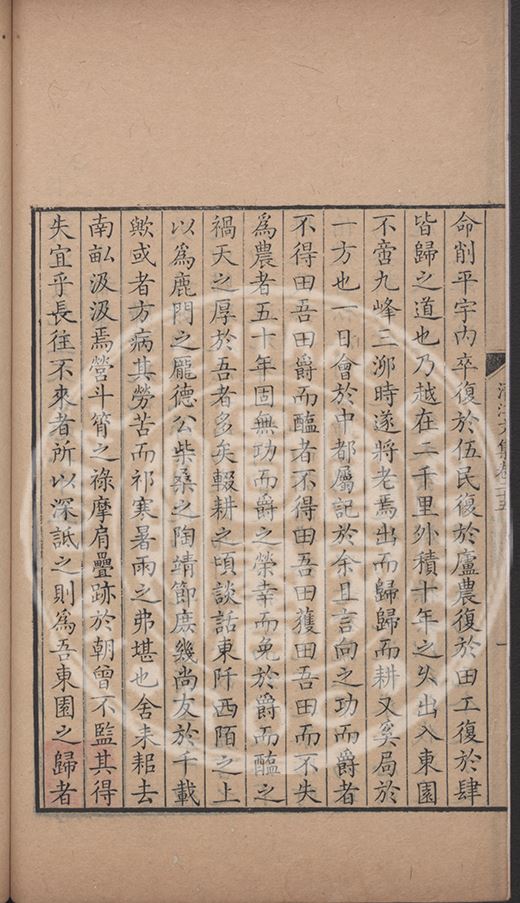 命削平宇內卒復於伍民復於廬農復於田工復於肆
皆歸之道也乃越在二千里外積十年之久出入東園
不啻九峰三泖時遂將老焉出而歸歸而耕又奚局於
一方也一日會於中都屬記於余且言向之功而爵者
不得田吾田爵而醢者不得田吾田獲田吾田而不失
爲農者五十年固無功而爵之榮幸而免於爵而醢之
禍天之厚於吾者多矣輟耕之頃談話東阡西陌之上
以爲鹿門之龐德公柴桑之陶靖節庶幾尚友於千載
歟或者方病其勞苦而祁寒暑雨之弗堪也舍耒耜去
南畝汲汲焉營斗筲之祿摩肩疊跡於朝曾不監其得
失宜乎長往不來者所以深詆之則爲吾東園之歸者
清江文集卷二十五
一